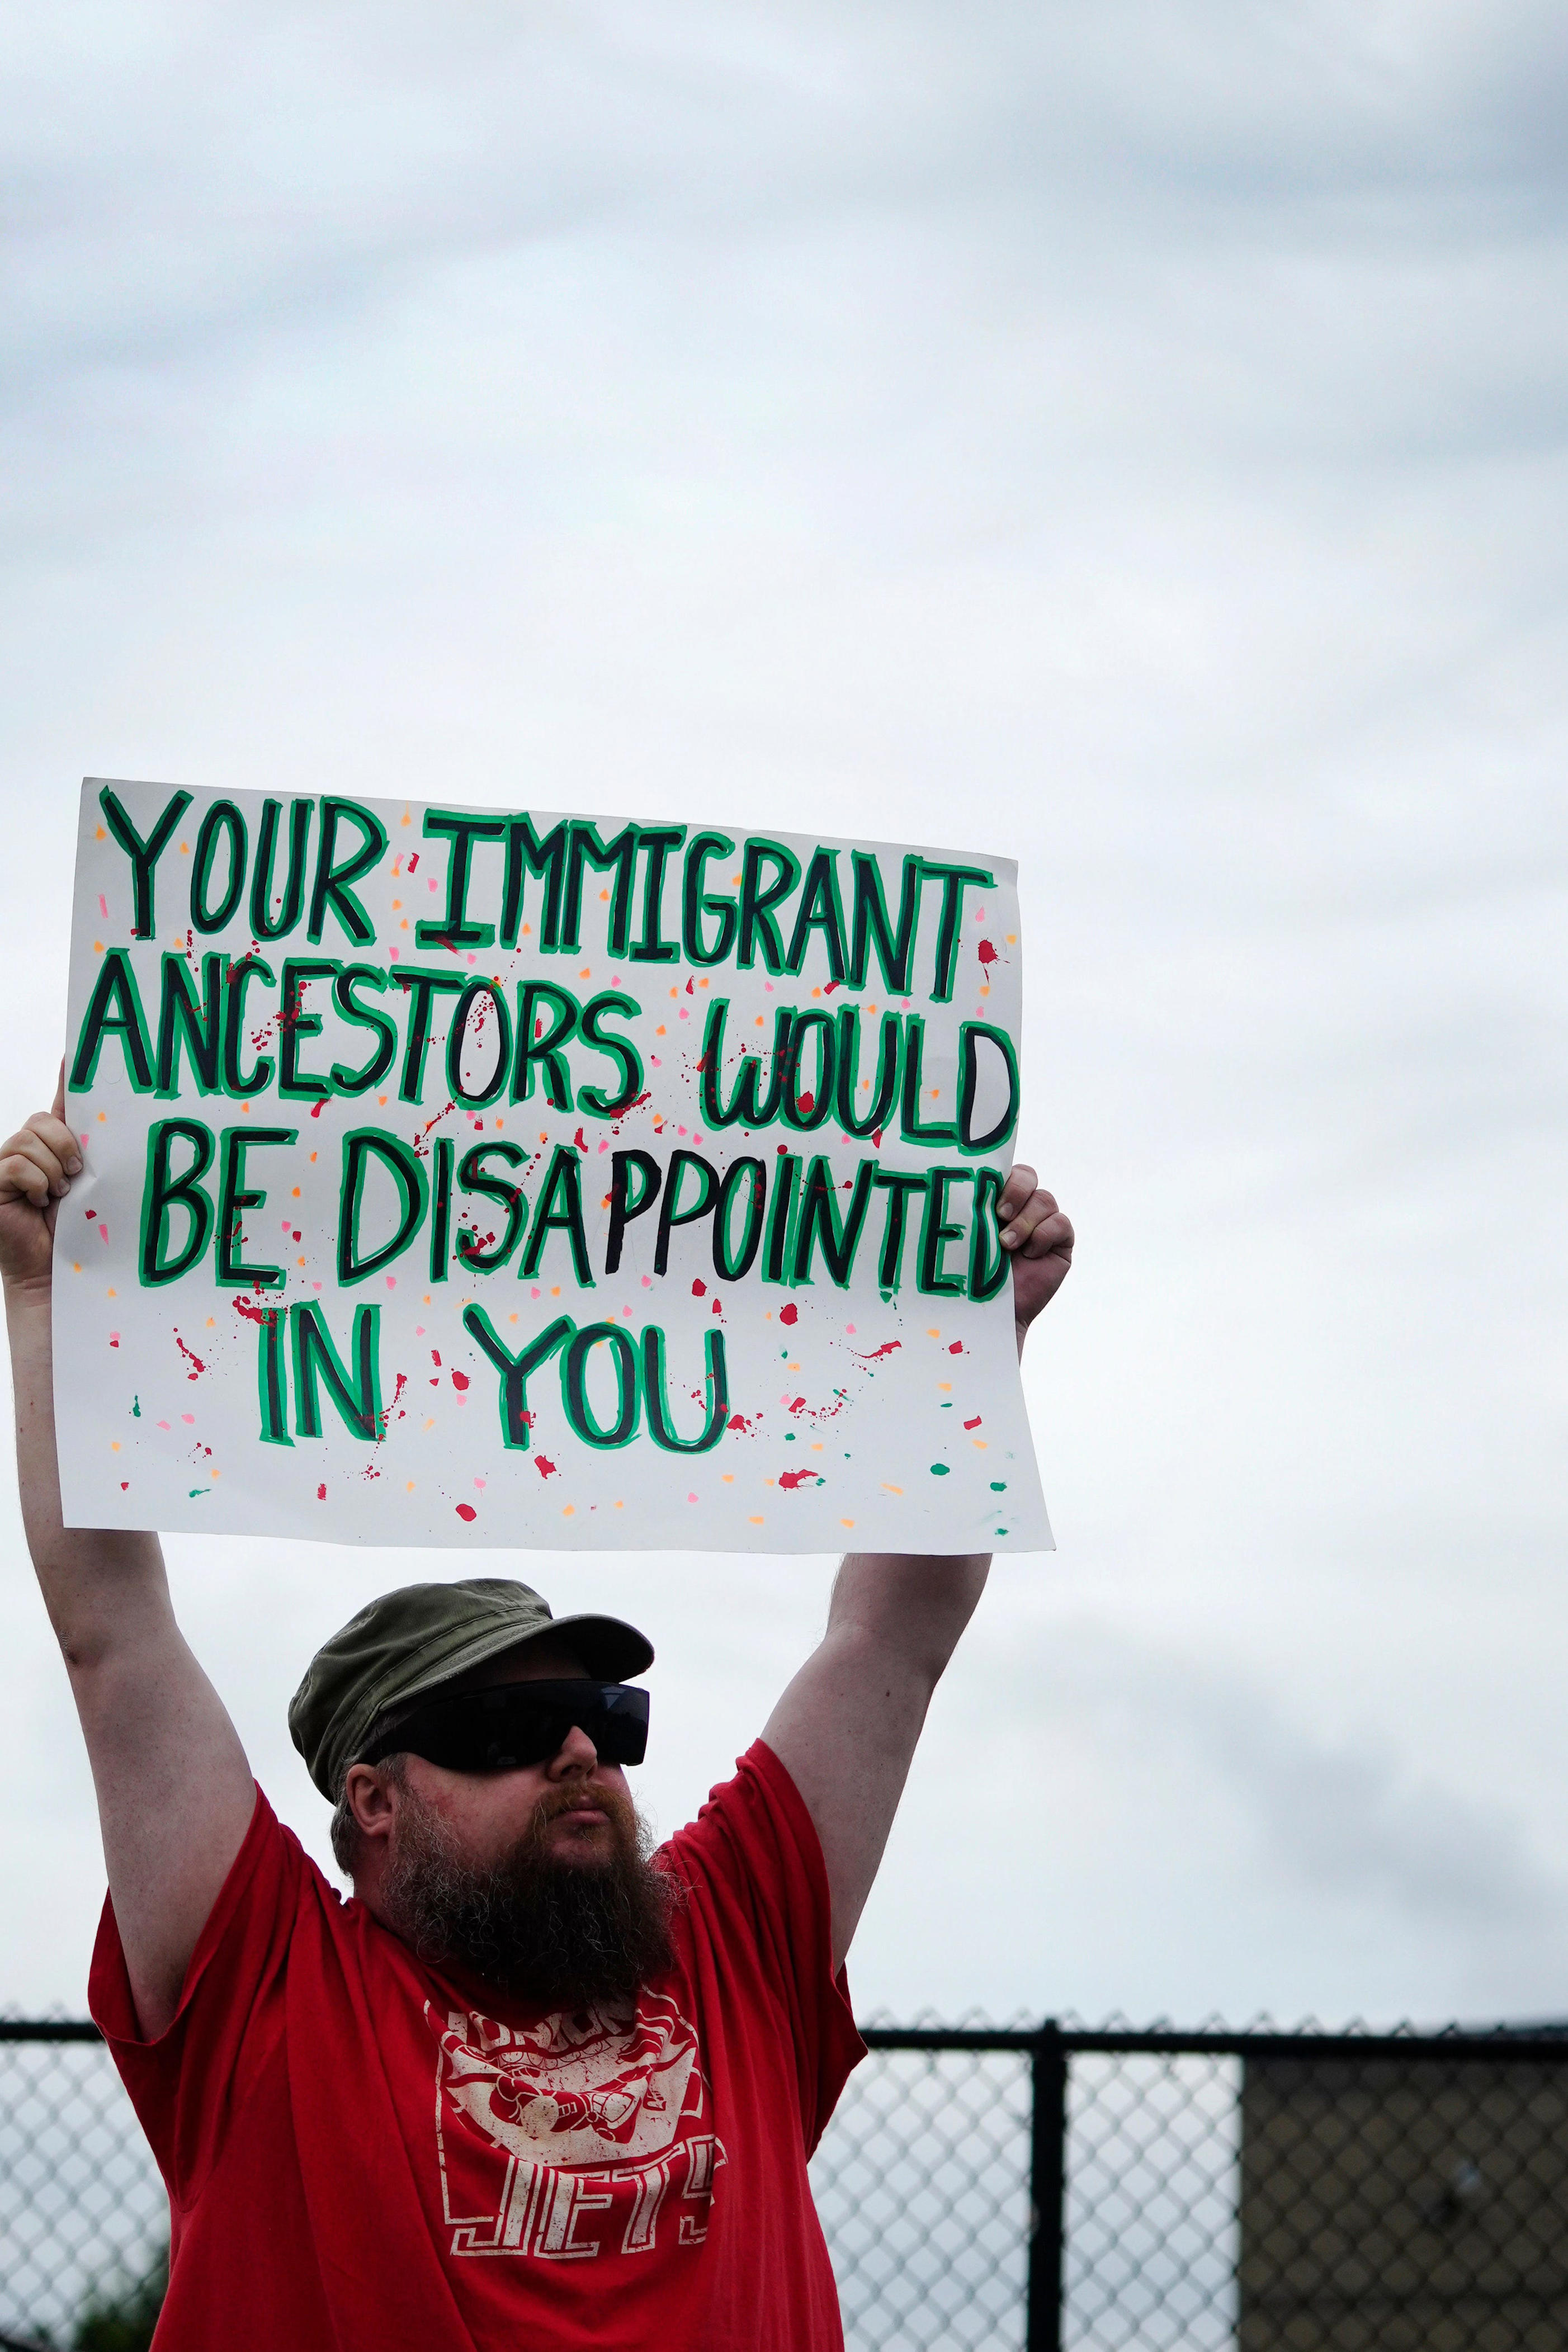 YOUR IMMIGRANT
ANCESTORS WOULD
BE DISAPPOINTED
IN YOU
JETS